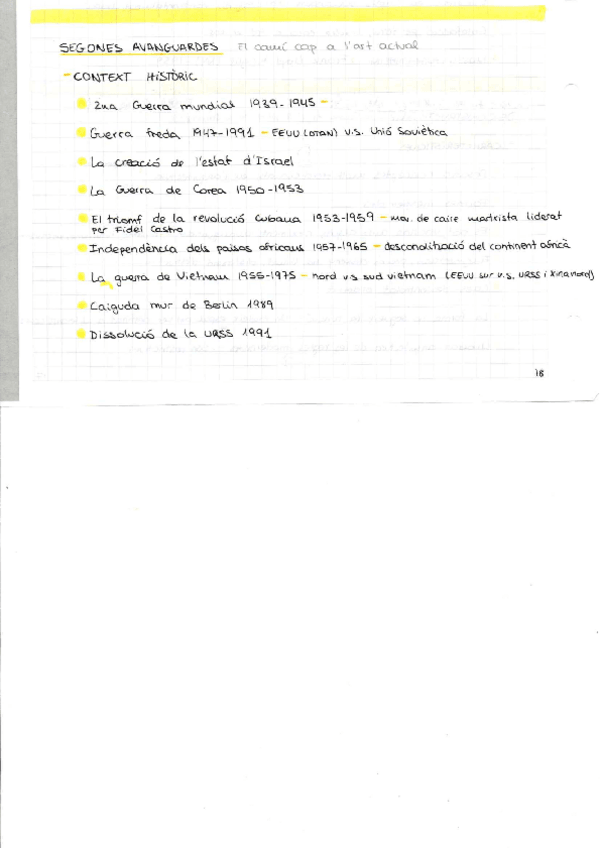 SEGONES AVANGUARDES El camí cap a l'art actual
- CONTEXT HISTÒRIC
2na Guerra mundial 1939-1945 -
Guerra freda 1947-1991 - EEUU (OTAN) V.S. Unió Soviètica
La creació de l'estat d'Israel
La Guerra de Corea 1950-1953
El triomf de la revolució cubana 1953-1959 - mov. de caire marxista liderat
per Fidel Castro
Independència dels països africans 1957-1965 - descolonització del continent africà
La guerra de Vietnam 1955-1975 - nord v.s sud vietnam (EEUU sur v.s. URSS i Xina nord)
Caiguda mur de Berlin 1989
Dissolució de la URSS 1991
18